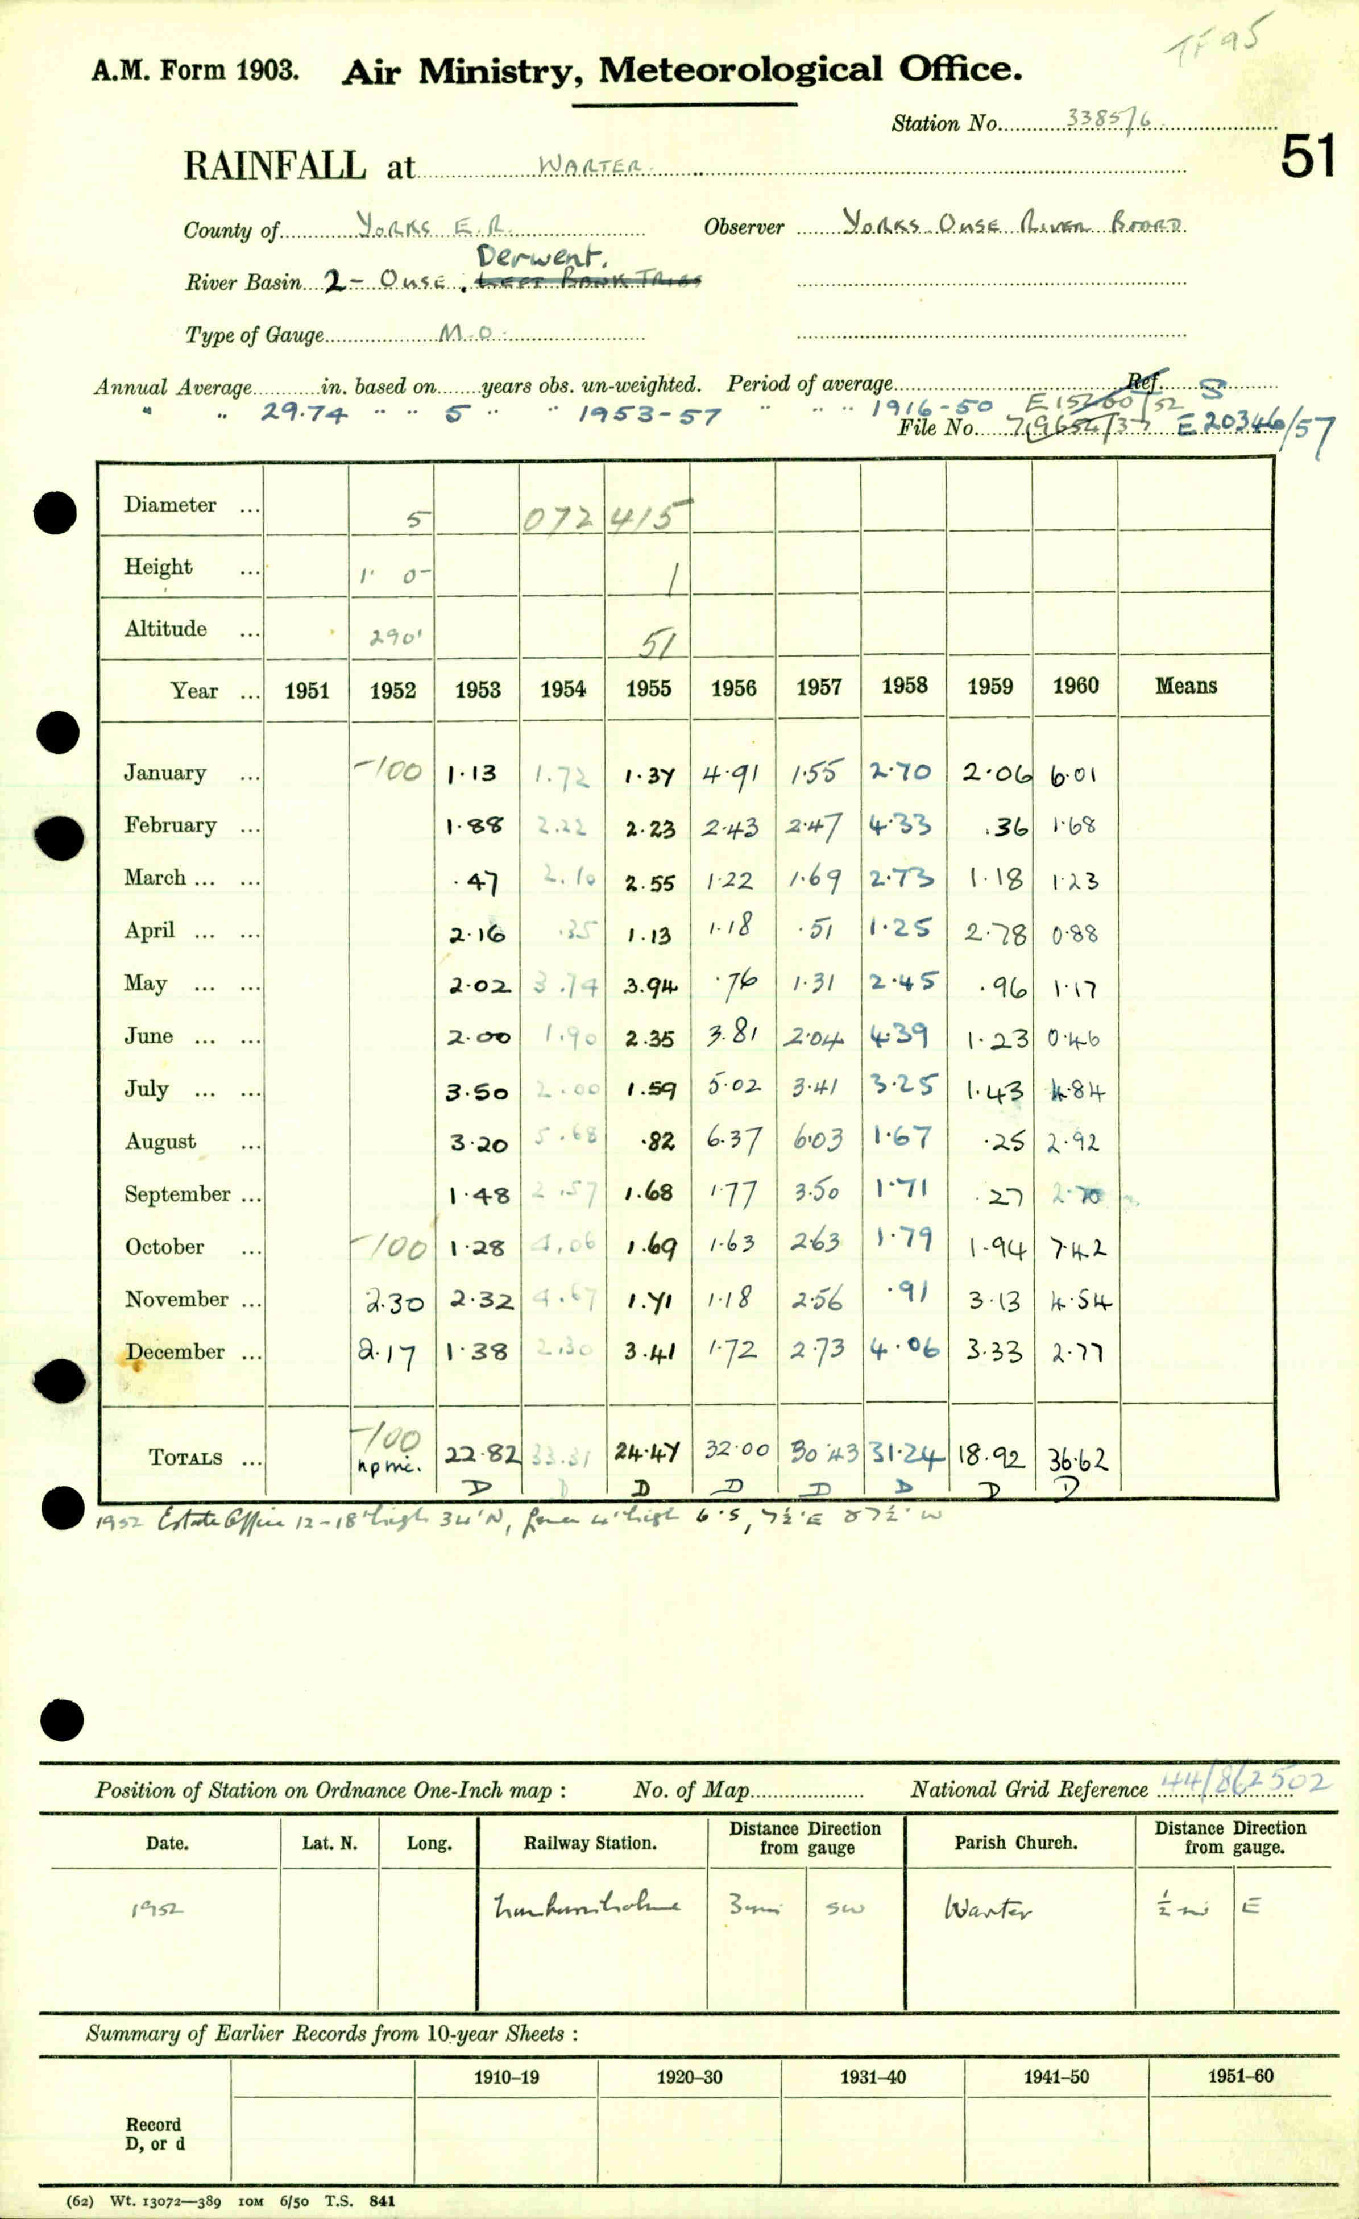 TF95
A.M. Form 1903. Air Ministry, Meteorological Office.
Station No. 3385/6
51
RAINFALL at WARTER
County of YORKS E.R. Observer YORKS OUSE RIVER BOARD
Derwent.
River Basin 2 - OUSE. LEFT BANK TRIBS
Type of Gauge M.O.
Annual Average in. based on years obs. un-weighted. Period of average Ref. S
" " 29.74 " " 5 " " 1953-57 " " " 1916-50 E15260/52
File No. E20346/57
Diameter ... 5 072 415
Height ... 1' 0" 1
Altitude ... 290' 51
Year ... 1951 1952 1953 1954 1955 1956 1957 1958 1959 1960 Means
January ... -100 1.13 1.72 1.37 4.91 1.55 2.70 2.06 6.01
February ... 1.88 2.22 2.23 2.43 2.47 4.33 .36 1.68
March ... ... .47 2.10 2.55 1.22 1.69 2.73 1.18 1.23
April ... ... 2.16 .35 1.13 1.18 .51 1.25 2.78 0.88
May ... ... 2.02 3.74 3.94 .76 1.31 2.45 .96 1.17
June ... ... 2.00 1.90 2.35 3.81 2.04 4.39 1.23 0.46
July ... ... 3.50 2.00 1.59 5.02 3.41 3.25 1.43 4.84
August ... 3.20 5.68 .82 6.37 6.03 1.67 .25 2.92
September ... 1.48 2.57 1.68 1.77 3.50 1.71 .27 2.70
October ... -100 1.28 4.06 1.69 1.63 2.63 1.79 1.94 7.42
November ... 2.30 2.32 4.67 1.71 1.18 2.56 .91 3.13 4.54
December ... 2.17 1.38 2.30 3.41 1.72 2.73 4.06 3.33 2.77
TOTALS ... -100 22.82 33.31 24.47 32.00 30.43 31.24 18.92 36.62
D D D D D D D D
1952 Estate Office 12-18' high 34' N, 4' high 6' S, 7½' E & 7½' W
Position of Station on Ordnance One-Inch map : No. of Map National Grid Reference 44/862502
Date. Lat. N. Long. Railway Station. Distance Direction from gauge Parish Church. Distance Direction from gauge.
1952 3 mi SW Warter ½ mi E
Summary of Earlier Records from 10-year Sheets :
1910–19 1920–30 1931–40 1941–50 1951–60
Record
D, or d
(62) Wt. 13072—389 10M 6/50 T.S. 841